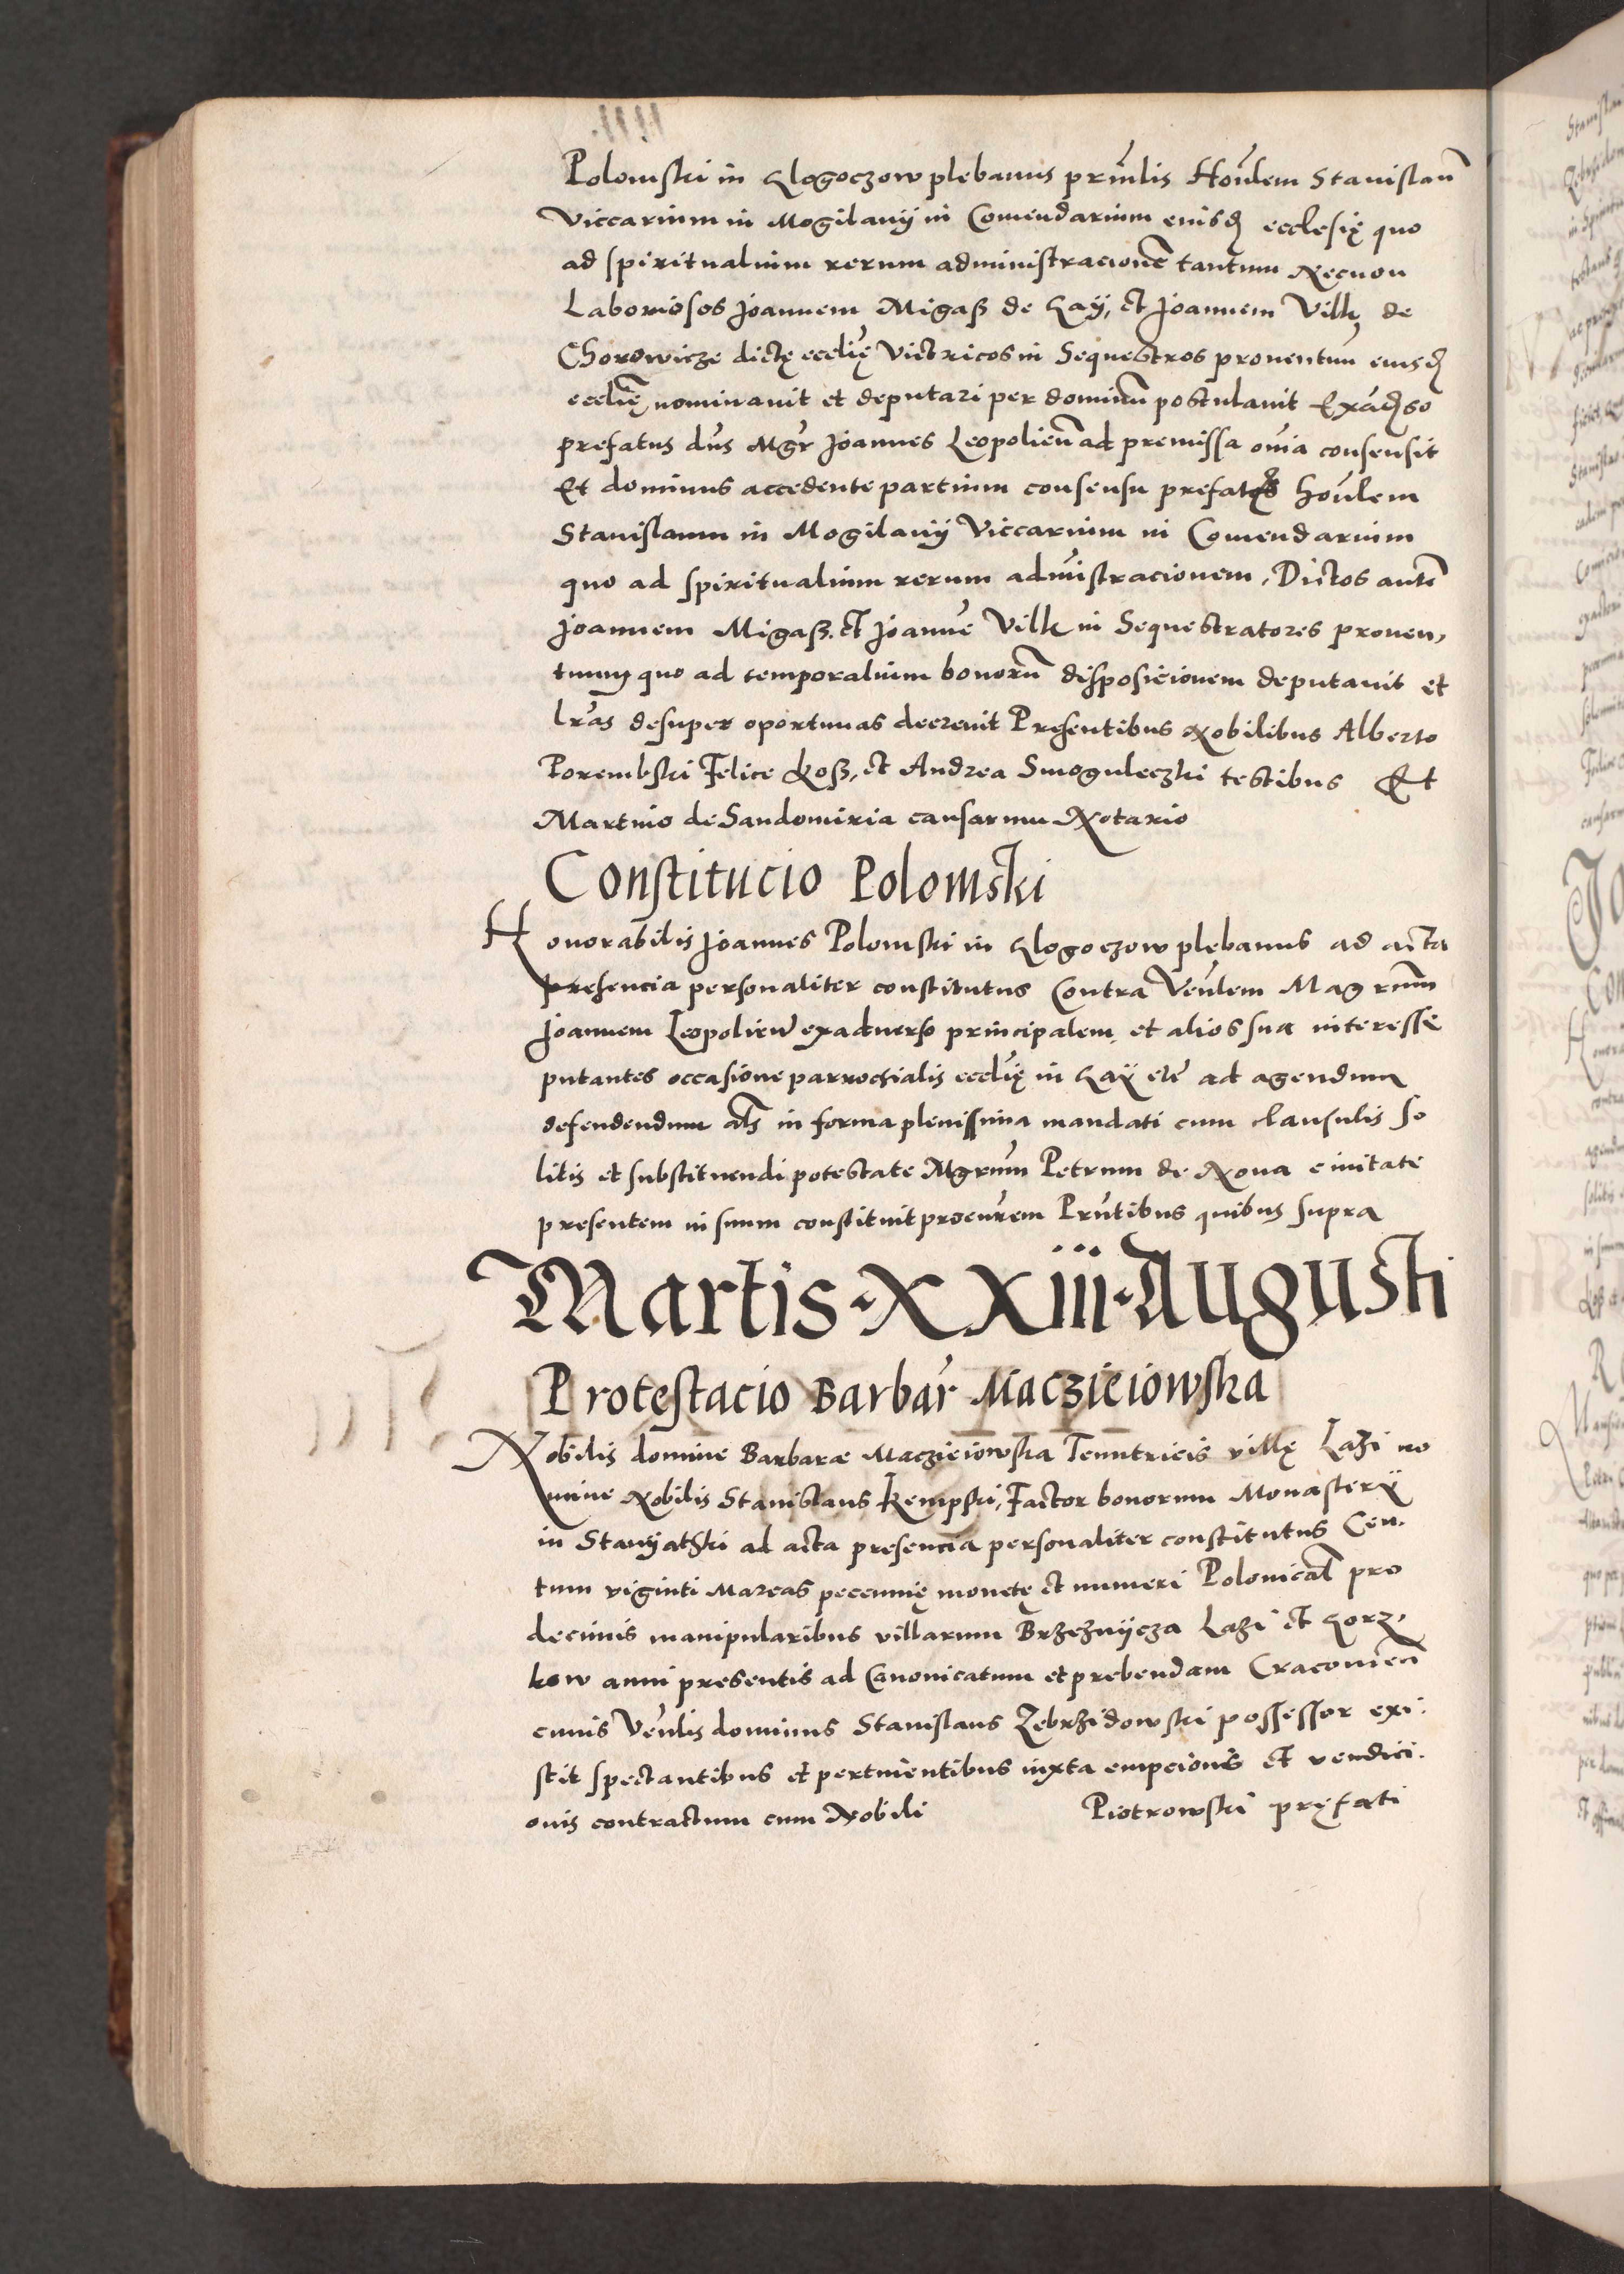 Polomski in Glogoczow plebanus prin̄lis Hon̄lem Stanislaū
Viccarium in Mogilanÿ in Comendarium eiusd ecclesię quo
ad spiritualium rerum administracionē tantum Necnon
Laboriosos Joannem Migasz de Gaÿ, et Joannem Vilk de
Chorowicze dictę eccl̄ię Victricos in Sequestros prouentuū eiusd
eccl̄ię nominauit et deputari per dominū postulauit Exaduerso
prefatus dn̄s Mgr̄ Joannes Leopolien̄ ad premissa om̄ia consensit
Et dominus accedente partium consensu prefatos hon̄lem
Stanislaum in Mogilanÿ Viccarium in Comendarium
quo ad spiritualium rerum adm̄istracionem, Dictos autē
Joannem Migasz. et Joannē Vilk in Sequestratores prouen,
tuum quo ad temporalium bonorū disposicionem deputauit et
lr̄as desuper oportunas decreuit Presentibus Nobilibus Alberto
Porembski Felice Kosz, et Andrea Smoguleczki testibus Et
Martino de Sandomiria causarum Notario
Constitucio Polomski
Honorabilis Joannes Polomski in Glogoczow plebanus ad acta
presencia personaliter constitutus Contra Ven̄lem Magrūm
Joannem Leopolien̄ exaduerso principalem et alios sua interesse
putantes occasione parrochialis eccl̄ię in Gaÿ etc̄ ad agendum
defendendum al̄s in forma plenissima mandati cum clausulis so
litis et substituendi potestate Mgrūm Petrum de Noua ciuitate
presentem in suum constituit procur̄em Prn̄tibus quibus supra
Martis · XXiii · Augusti
Protestacio Barbar̄ Macziеiowska
Nobilis domine Barbarae Maczieiowska Tenutricis villę Lazi no
mine Nobilis Stanislaus Kempski, Factor bonorum Monasterÿ
in Stanyathki ad acta presencia personaliter constitutus Cen,
tum viginti Marcas peccunię monetę et numeri Polonical̄ pro
decimis manipularibus villarum Brzeznÿcza Lazi et Gorz,
kow anni presentis ad Canonicatum et prebendam Cracouien̄
cuius Ven̄lis dominus Stanislaus Zebrzidowski possessor exi.
stit spectantibus et pertinentibus iuxta empcionis et vendici.
onis contractum cum Nobili Piotrowski pręfati